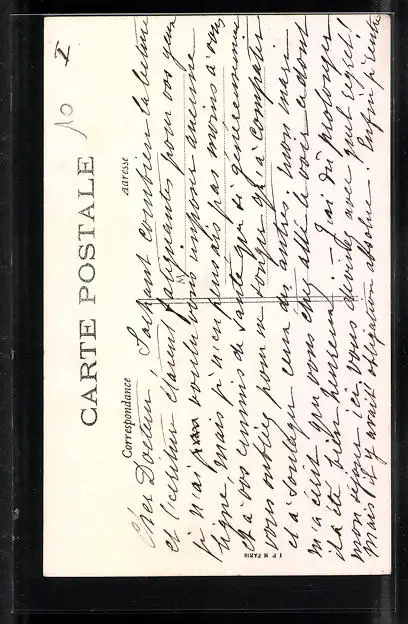 CARTE POSTALE
Correspondance
Adresse
10
Cher Docteur! Sachant combien la lecture
et l'écriture étaient fatigantes pour vos yeux
je n'ai pas voulu vous imposer aucune
ligne, mais je n'en pensais pas moins à vous
et à vos ennuis de santé qui si généreusement
vous oubliez pour ne songer qu'à compatir
et à soulager ceux des autres; mon mari
m'a écrit que vous étiez allé le voir ce dont
il a été bien heureux. - J'ai dû prolonger
mon séjour ici, vous devinez avec quel regret!
Mais il y avait obligation absolue. Enfin je rentre
I P M PARIS